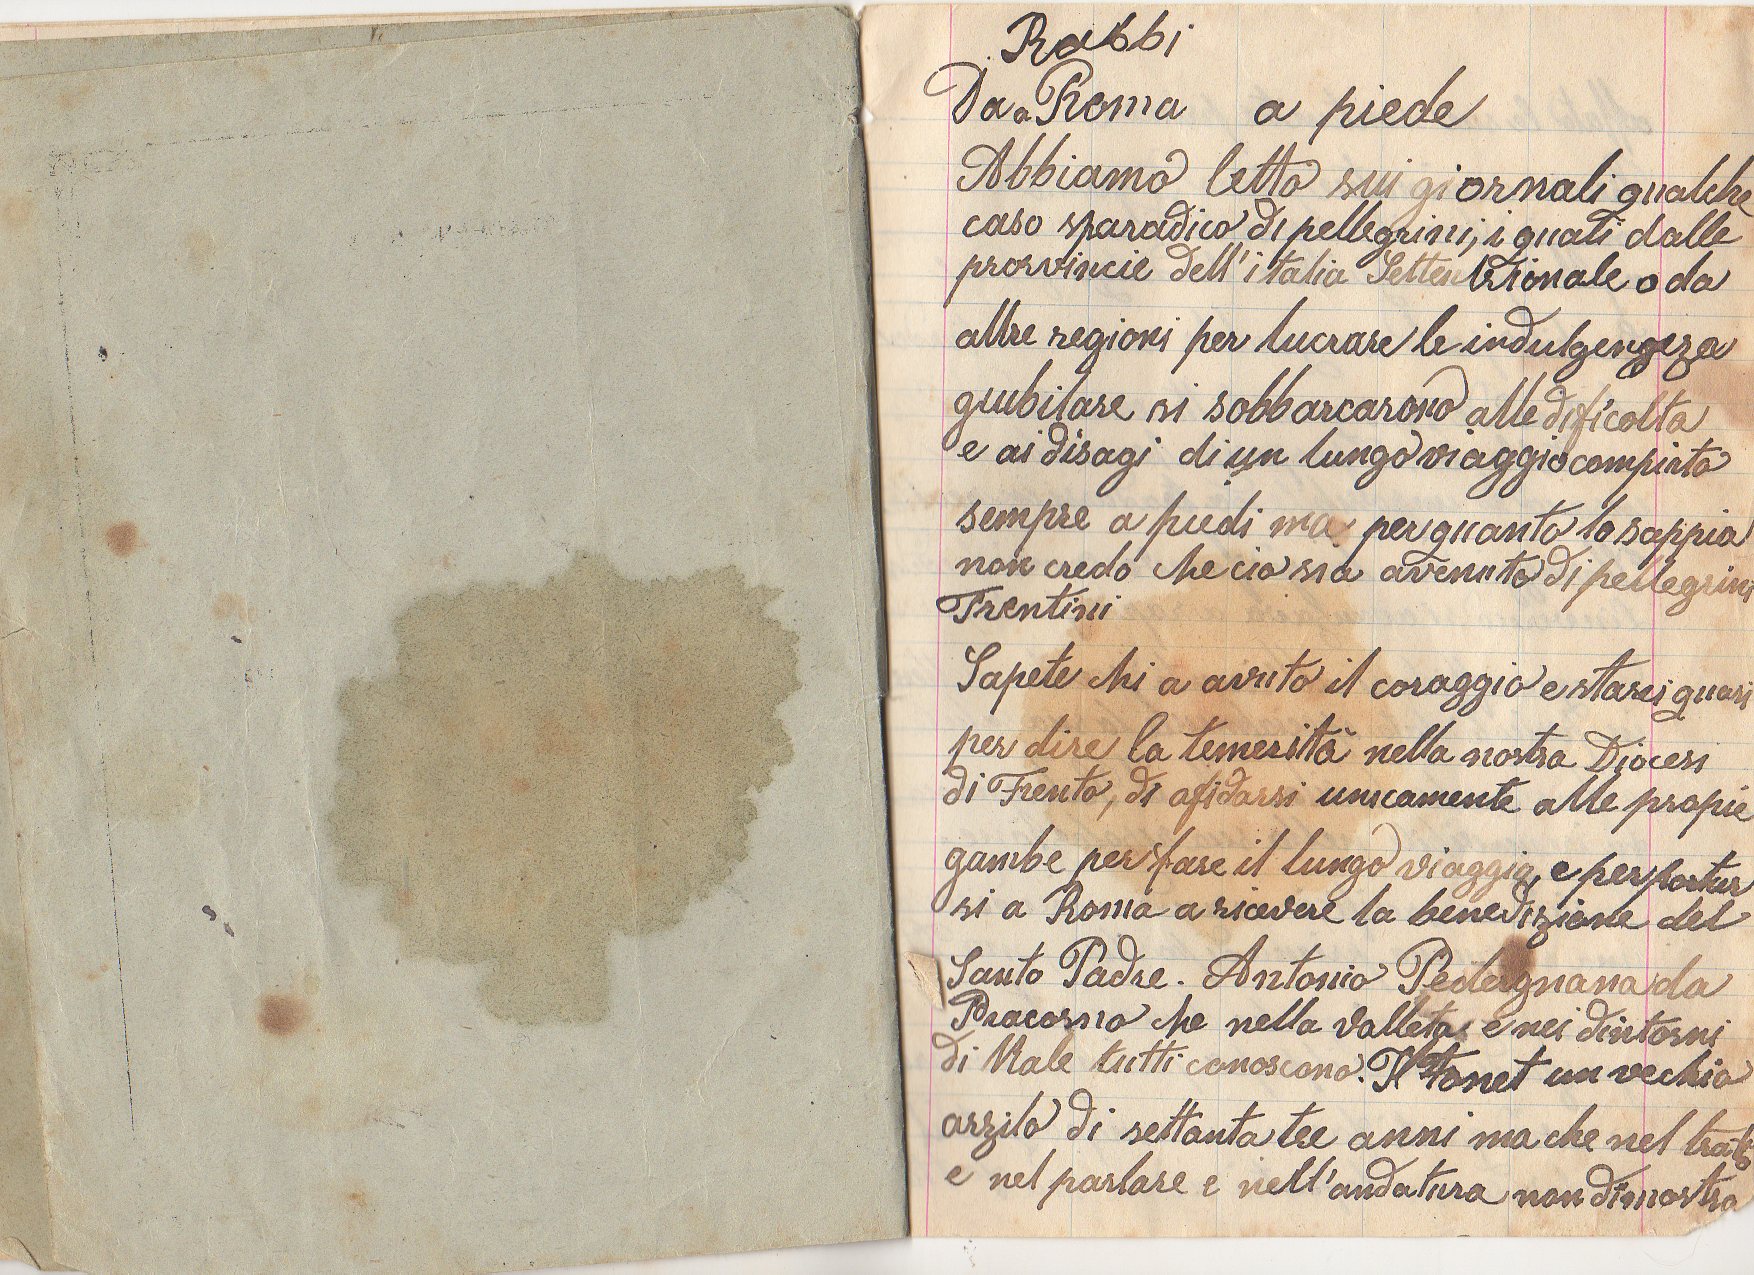 Rabbi
Da a Roma a piede
Abbiamo letto sui giornali qualche
caso sparadico di pellegrini, i quati dalle
provincie dell'italia Settentrionale o da
altre regioni per lucrare le indulgengeza
giubilare si sobbarcarono alle dificolta
e ai disagi di un lungo viaggio compiuto
sempre a piedi ma per quanto lo sappia
non credo che cio sia avenuto di pellegrini
Trentini
Sapete chi a avuto il coraggio e starei quasi
per dire la temerità nella nostra Diocesi
di Trento, di afidarsi unicamente alle propie
gambe per fare il lungo viaggio, e per portar
si a Roma a ricevere la benedizione del
Santo Padre. Antonio Pedergnana da
Pracorno che nella valleta e nei dintorni
di Male tutti conoscono. Il tonet un vechio
arzilo di settanta tre anni ma che nel trato
e nel parlare e nell'andatura non dimostra